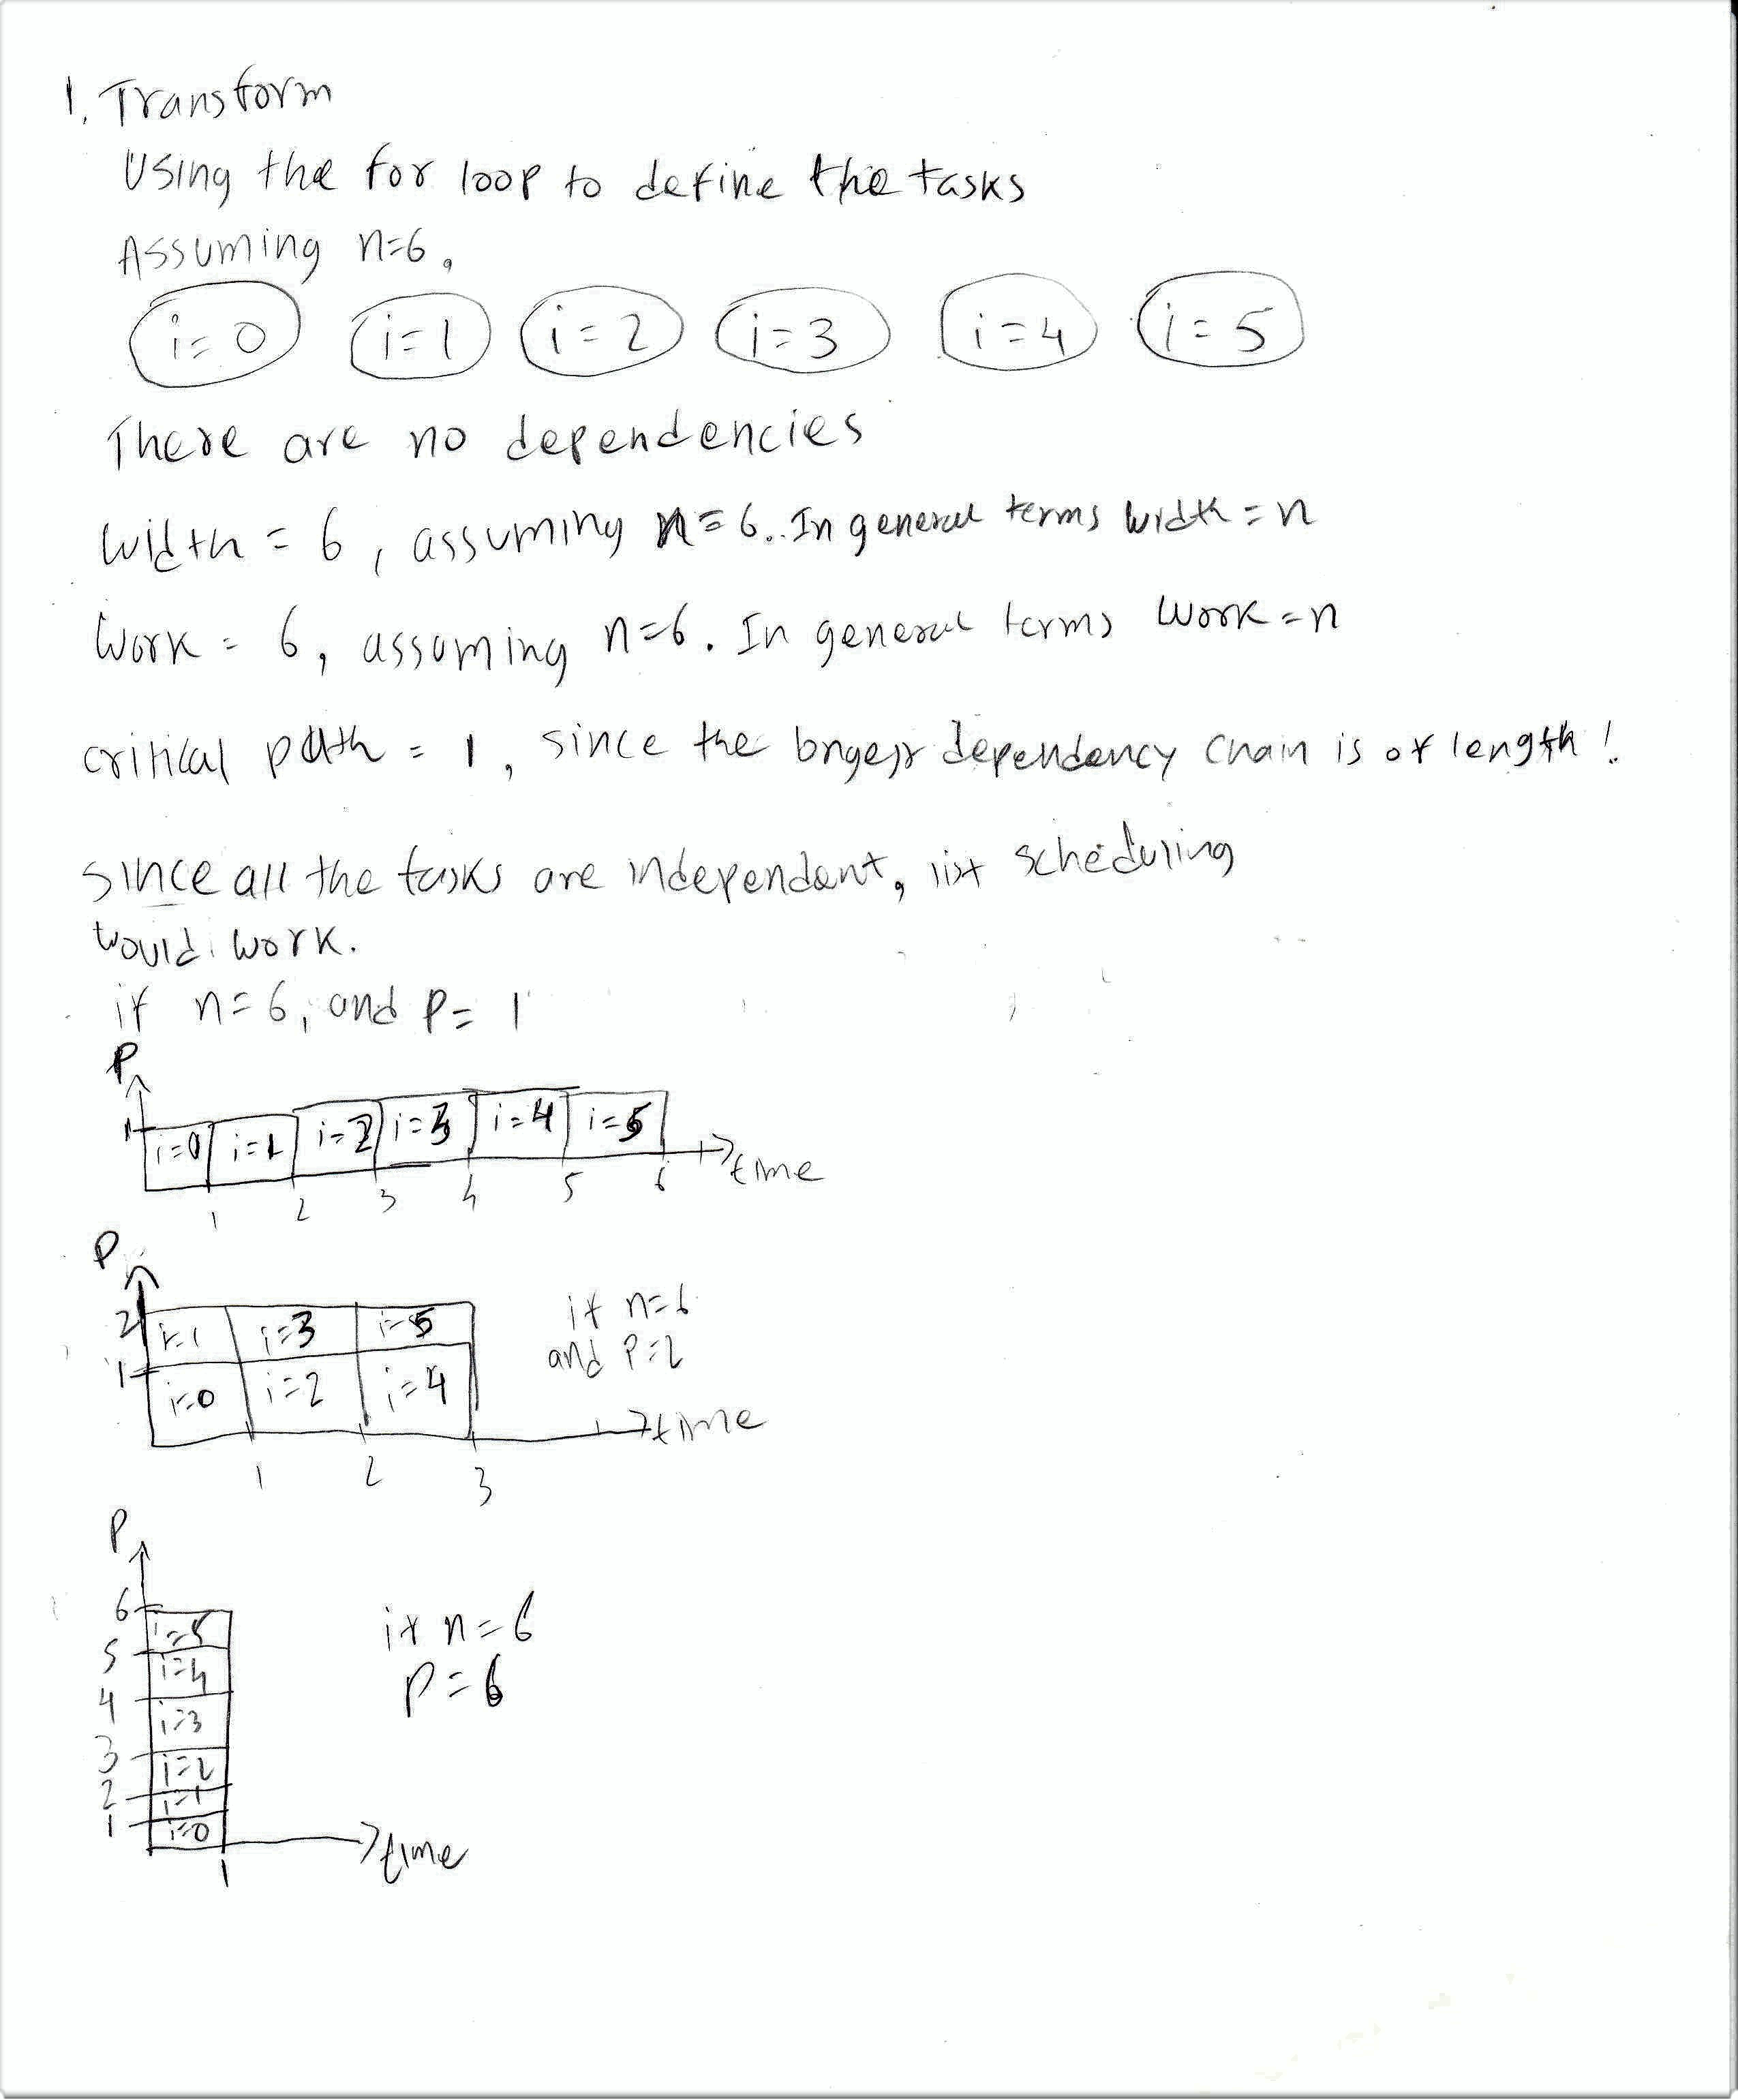 1. Transform
Using the for loop to define the tasks
Assuming n=6,
i=0 i=1 i=2 i=3 i=4 i=5
There are no dependencies
Width = 6, assuming n=6. In general terms width = n
Work = 6, assuming n=6. In general terms Work = n
critical path = 1, since the longest dependency chain is of length 1.
Since all the tasks are independent, list scheduling
would work.
if n=6, and P=1
P
1
i=0 i=1 i=2 i=3 i=4 i=5
time
1 2 3 4 5 6
P
2
i=1 i=3 i=5
if n=6
and P=2
1
i=0 i=2 i=4
time
1 2 3
P
6
i=5
if n=6
P=6
5
i=4
4
i=3
3
i=2
2
i=1
1
i=0
time
1